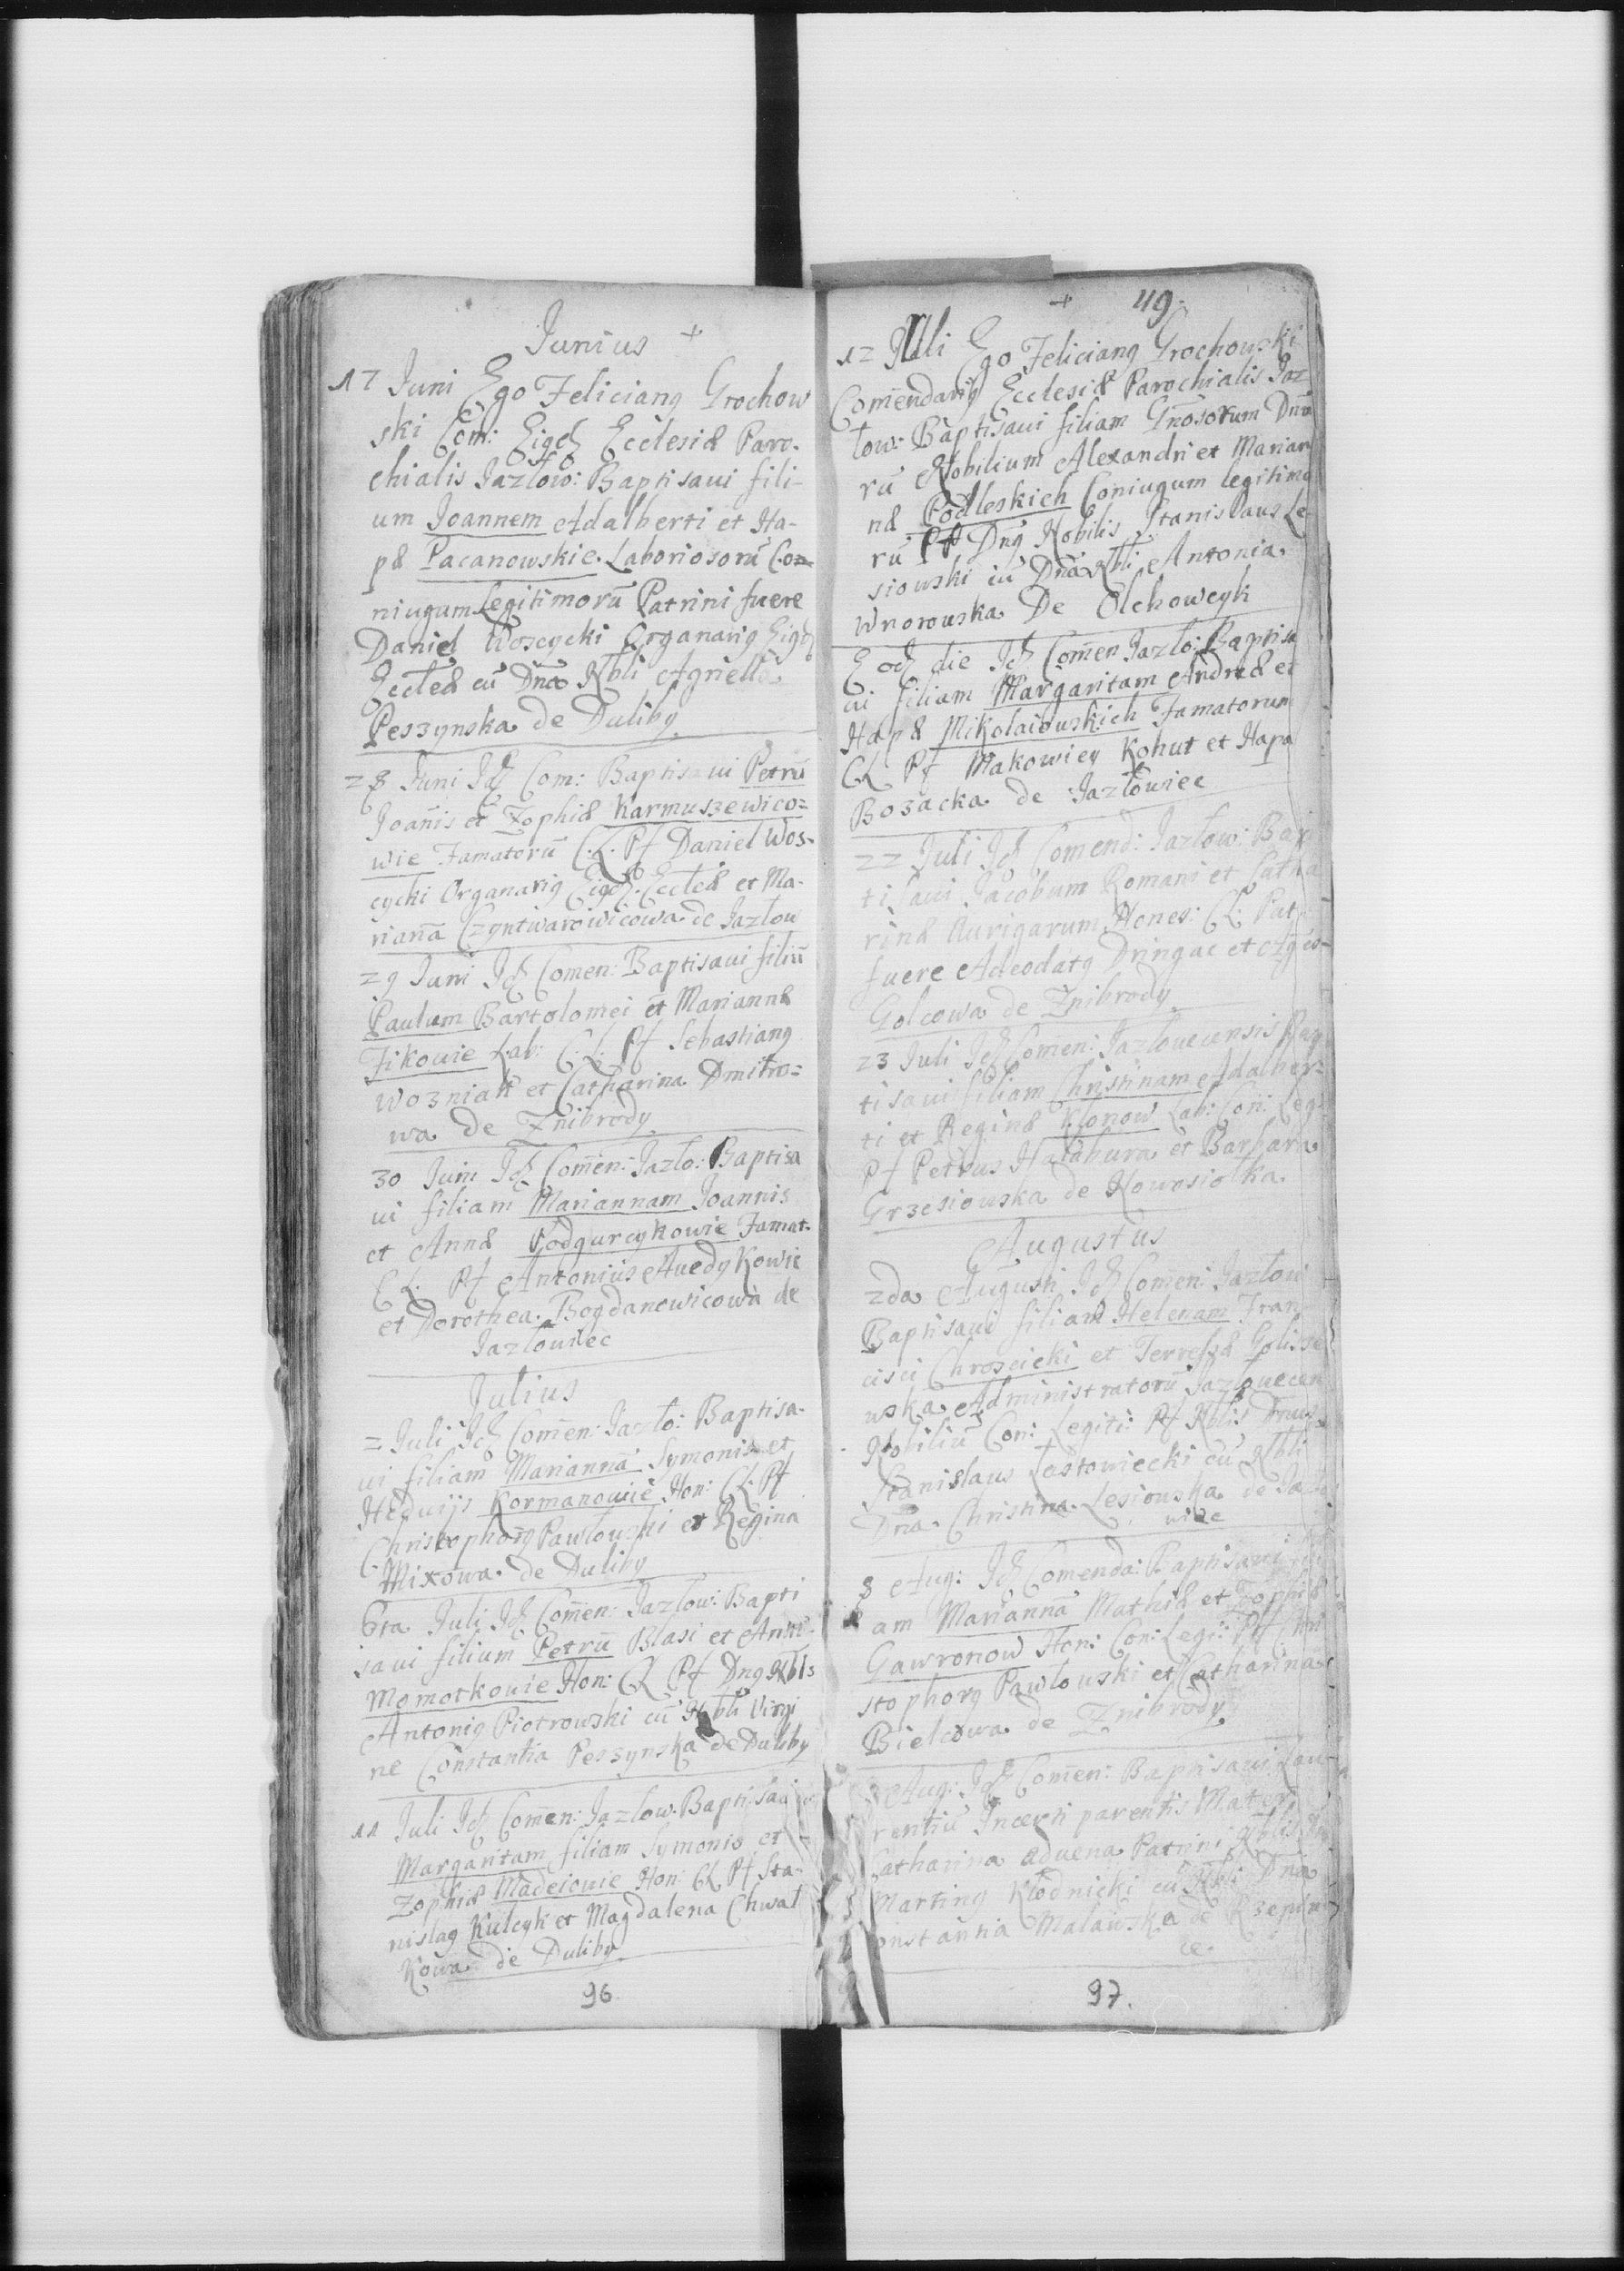 Junius +
17 Juni Ego Felicianus Grochow
ski Com: Eiusd Ecclesiæ Paro-
chialis Jazlow: Baptisavi fili-
um Joannem Adalberti et Ha-
pæ Pacanowskie Laboriosorū Con-
niugum Legitimorū Patrini fuere
Daniel Woscycki Organarius Eiusd
Eccleæ cū Dna Nbli Agnella
Peszynska de Duliby
28 Juni Id Com: Baptisavi Petrū
Joanis et Zophiæ Karmuszewico=
wie Famatorū C.L. Pt Daniel Wos-
cycki Organarius Eiusd. Eccleæ et Ma-
riana Czyntwarowicowa de Jazlow
29 Juni Id Comen: Baptisavi filiū
Paulum Bartolomei et Mariannæ
Fikowie Lab: C:L: Pt Sebastianus
Wozniak et Catharina Dmitro=
wa de Znibrody
30 Juni Id Comen: Jazlo: Baptisa
vi filiam Mariannam Joannis
et Annæ Podgurcykowie Famat.
C L. Pt Antonius Avedykowic
et Dorothea Bogdanowicowa de
Jazlowiec
Julius
2 Juli Id Comen: Jazlo: Baptisa-
vi filiam Marianna Symonis et
Hedwijs Kormanowie Hon: CL. Pt
Christophorus Pawlowski et Regina
Mixowa de Duliby
6ta Juli Id Comen: Jazlow: Bapti
savi filium Petrū Blasi et Annæ
Momotkowie Hon: CL Pt Dnus Nbls
Antonius Piotrowski cū Nbli Virgi
ne Constantia Peszynska de Duliby
11 Juli Id Comen: Jazlow. Baptisavi
Margaritam filiam Symonis et
Zophiæ Madeiowie Hon: CL Pt Sta-
nislaus Kulcyk et Magdalena Chwal
kowa de Duliby
96.
+ 49.
12 Juli Ego Felicianus Grochowski
Comendarius Ecclesiæ Parochialis Jaz
low: Baptisavi filiam Gnosorum Dno
rū Nobilium Alexandri et Marian
næ Podleskich Coniugum legitimo
rū Pt Dnus Nobilis Stanislaus Le
siowski cū Dna Nbli Antonia
Wnorowska De Olchowcyk
Eod die Id Comen Jazlo: Baptisa
vi filiam Margaritam Andreæ et
Hapæ Mikolaiowskich Famatorum
CL Pt Makowiey Kohut et Hapa
Bozacka de Jazlowiec
22 Juli Id Comend: Jazlow: Bap
tisavi Jacobum Romani et Catha
rinæ Aurigarum Hones: CL: Pat
fuere Adeodatus Dringac et Agnes-
Golcowa de Znibrody
23 Juli Id Comen: Jazlovecensis Bap
tisavi filiam Christinam Adalber=
ti et Reginæ Klonow Lab: Con: Leg:
Pt Petrus Halahura et Barbara
Grzesiowska de Nowosiolka
Augustus
2da Augusti Id Comen: Jazlow
Baptisavi filiam Helenam Fran
cisci Chroscicki et Terresæ Golisze
wska Administratorū Jazlovecen
Nobiliū Con: Legiti: Pt Nbls Dnus
Stanislaus Lastowiecki cū Nbli
Dna Christina Lesiowska de Jazlo
wiec
8 Aug: Id Comenda: Baptisavi fili
am Marianna Mathiæ et Zophiæ
Gawronow Hon: Con: Legi: Pt Chri
stophorus Pawlowski et Catharina
Bielcowa de Znibrody
Aug: Id Comen: Baptisavi Lau
rentiū Incerti parentis Mater
Catharina advena Patrini Nblis Dnus
Martinus Klodnicki cū Nbli Dna
onstantia Malawska de Rzepin
ce.
97.